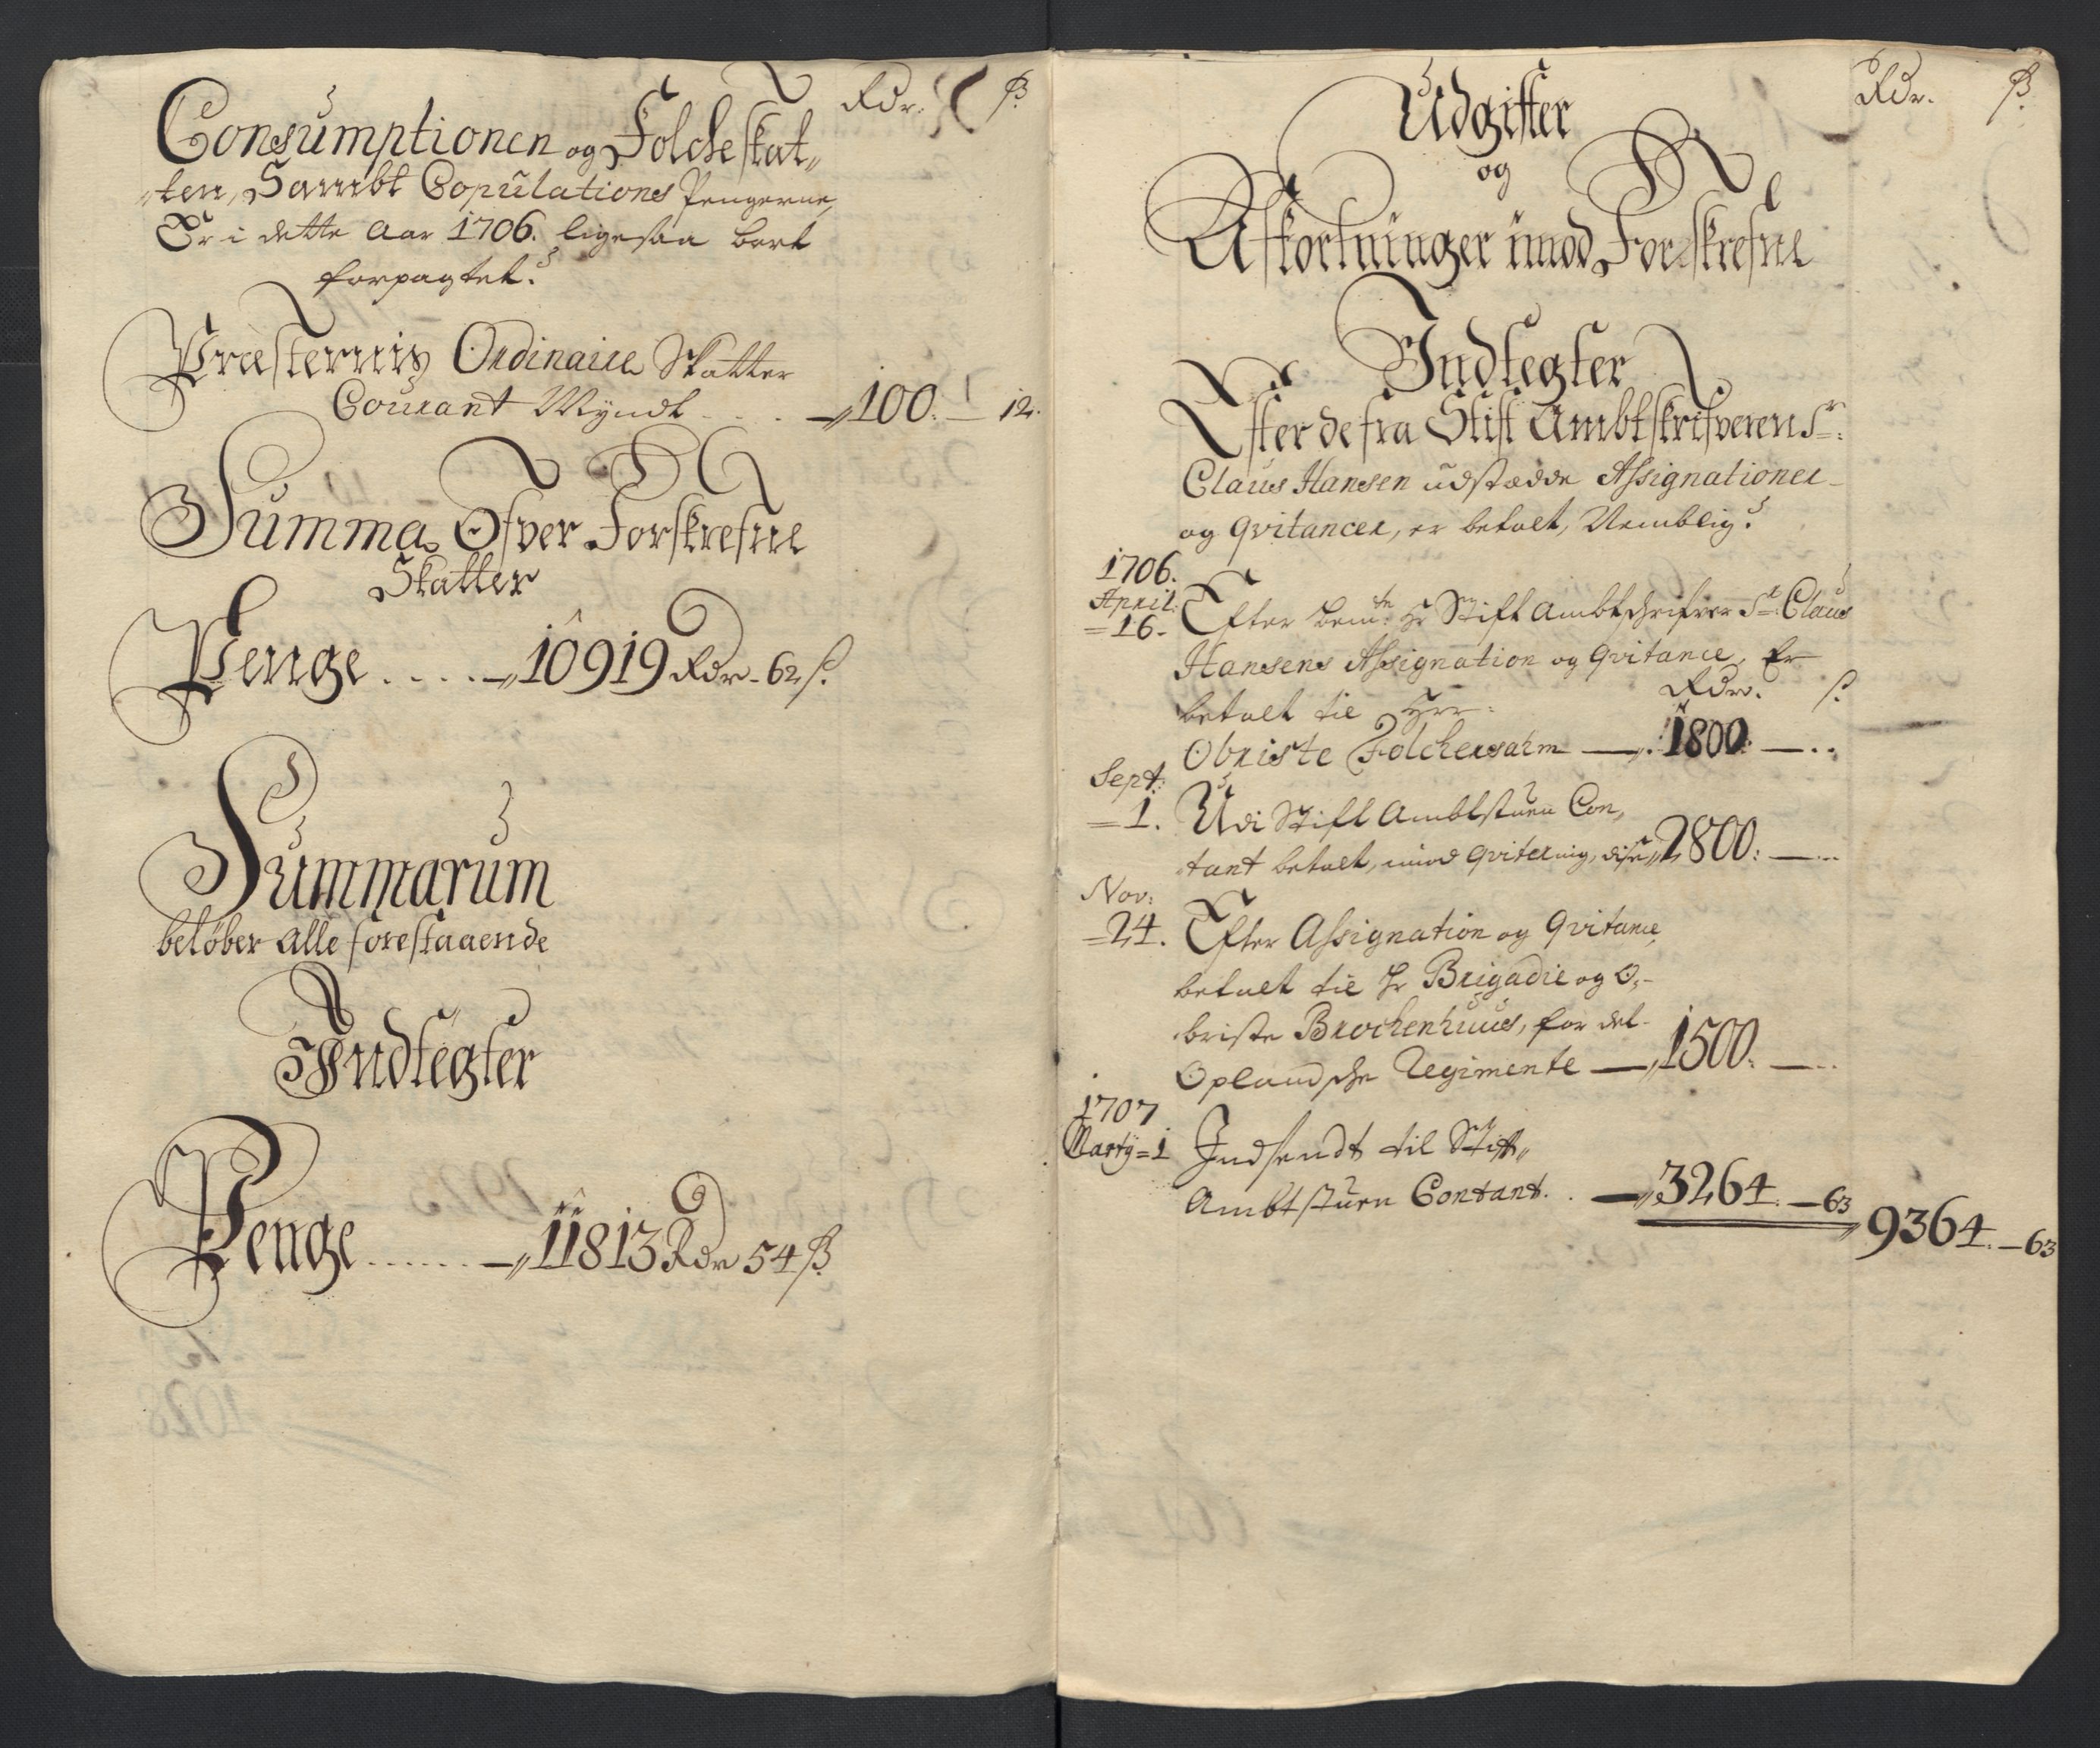 Rdr. ß.
Consumptionen og Folcheskat„
„ten, Sambt Copulations Pengerne,
Er i dette Aar 1706. ligesaa bort
forpagtet.
Præsternis Ordinaire Skatter
Courant Myndt - . . —„100. — 12.
Summa Ofver Forskrefne
Skatter
Penge . . . . —„10919 Rdr - 62 ß.
Summarum
beløber alle forestaaende
Indtegter
Penge . . . . . . —„11813 Rdr 54 ß.
Rdr. ß.
Udgifter
og
Afkortninger imod Forskrefne
Indtegter
Efter de fra Stift Ambtskrifveren Sr:
Claus Hansen udstædde Assignationer
og Qvitancer, er betalt, Nemblig.
1706.
April:
=16. Efter bemte Hr Stift Ambtschrifver Sr: Claus
Hansens Assignation og Qvitance, Er
betalt til Herr: Rdr. ß.
Obriste Folchersahm —„1800. — . .
Sept:
=1. Udi Stift Ambtstuen Con„
tant betalt, imod Qvitering, disse „2800: — . .
Nov:
=24. Efter Assignation og Qvitance,
betalt til Hr Brigadie og O„
briste Brochenhuus, for det
Oplandsche Regimente —„1500. — . .
1707
Marty=1 Indsendt til Stift„
Ambtstuen Contant. . —„3264. — 63
„9364. — 63